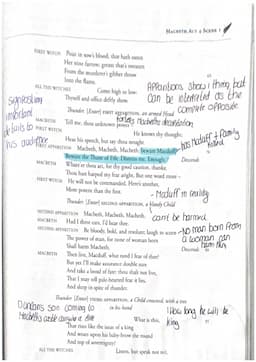 MACBETH ACT 4 SCENE 1
FIRST WITCH Pour in sow's blood, that hath eaten
Her nine farrow; grease that's sweaten
From the murderer's gibbet throw
Into the flame.
ALL THE WITCHES Come high or low:
Thyself and office deftly show.
Apparitions show things that
can be interpreted as the
complete opposite
Thunder. [Enter] FIRST APPARITION, an armed Head
signposting
important
details to
his audience
MACBETH Tell me, thou unknown power –
FIRST WITCH He knows thy thought;
Hear his speech, but say thou nought.
FIRST APPARITION Macbeth, Macbeth, Macbeth: beware Macduff,
Beware the Thane of Fife. Dismiss me. Enough.
Descends
has Macduff + family
killed
MACBETH Whate'er thou art, for thy good caution, thanks;
Thou hast harped my fear aright. But one word more –
FIRST WITCH He will not be commanded. Here's another,
More potent than the first.
Macduff in reality
Thunder. [Enter] SECOND APPARITION, a bloody Child
SECOND APPARITION Macbeth, Macbeth, Macbeth.
can't be harmed
MACBETH Had I three ears, I'd hear thee.
SECOND APPARITION Be bloody, bold, and resolute; laugh to scorn
The power of man, for none of woman born
Shall harm Macbeth.
Descends
No man born from
a woman can
harm him
MACBETH Then live, Macduff, what need I fear of thee?
But yet I'll make assurance double sure
And take a bond of fate: thou shalt not live,
That I may tell pale-hearted fear it lies,
And sleep in spite of thunder.
Thunder. [Enter] THIRD APPARITION, a Child crowned, with a tree
in his hand
son coming to
Macbeth's castle
What is this,
That rises like the issue of a king
And wears upon his baby-brow the round
And top of sovereignty?
How long he will be
king
ALL THE WITCHES Listen, but speak not to't.